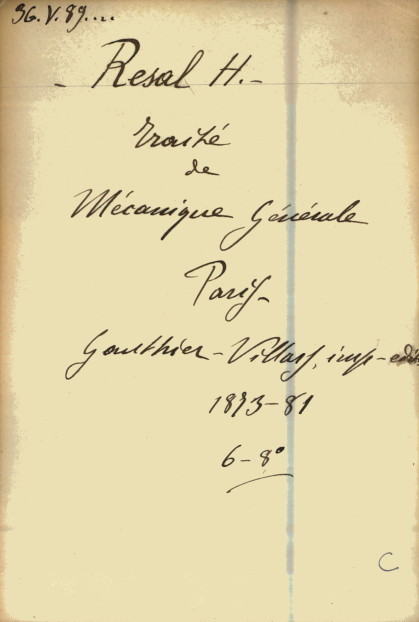 36.V.89....
- Resal H. -
Traité
de
Mécanique Générale
Paris -
Gauthier-Villars, imp-edit.
1873-81
6-8º
C